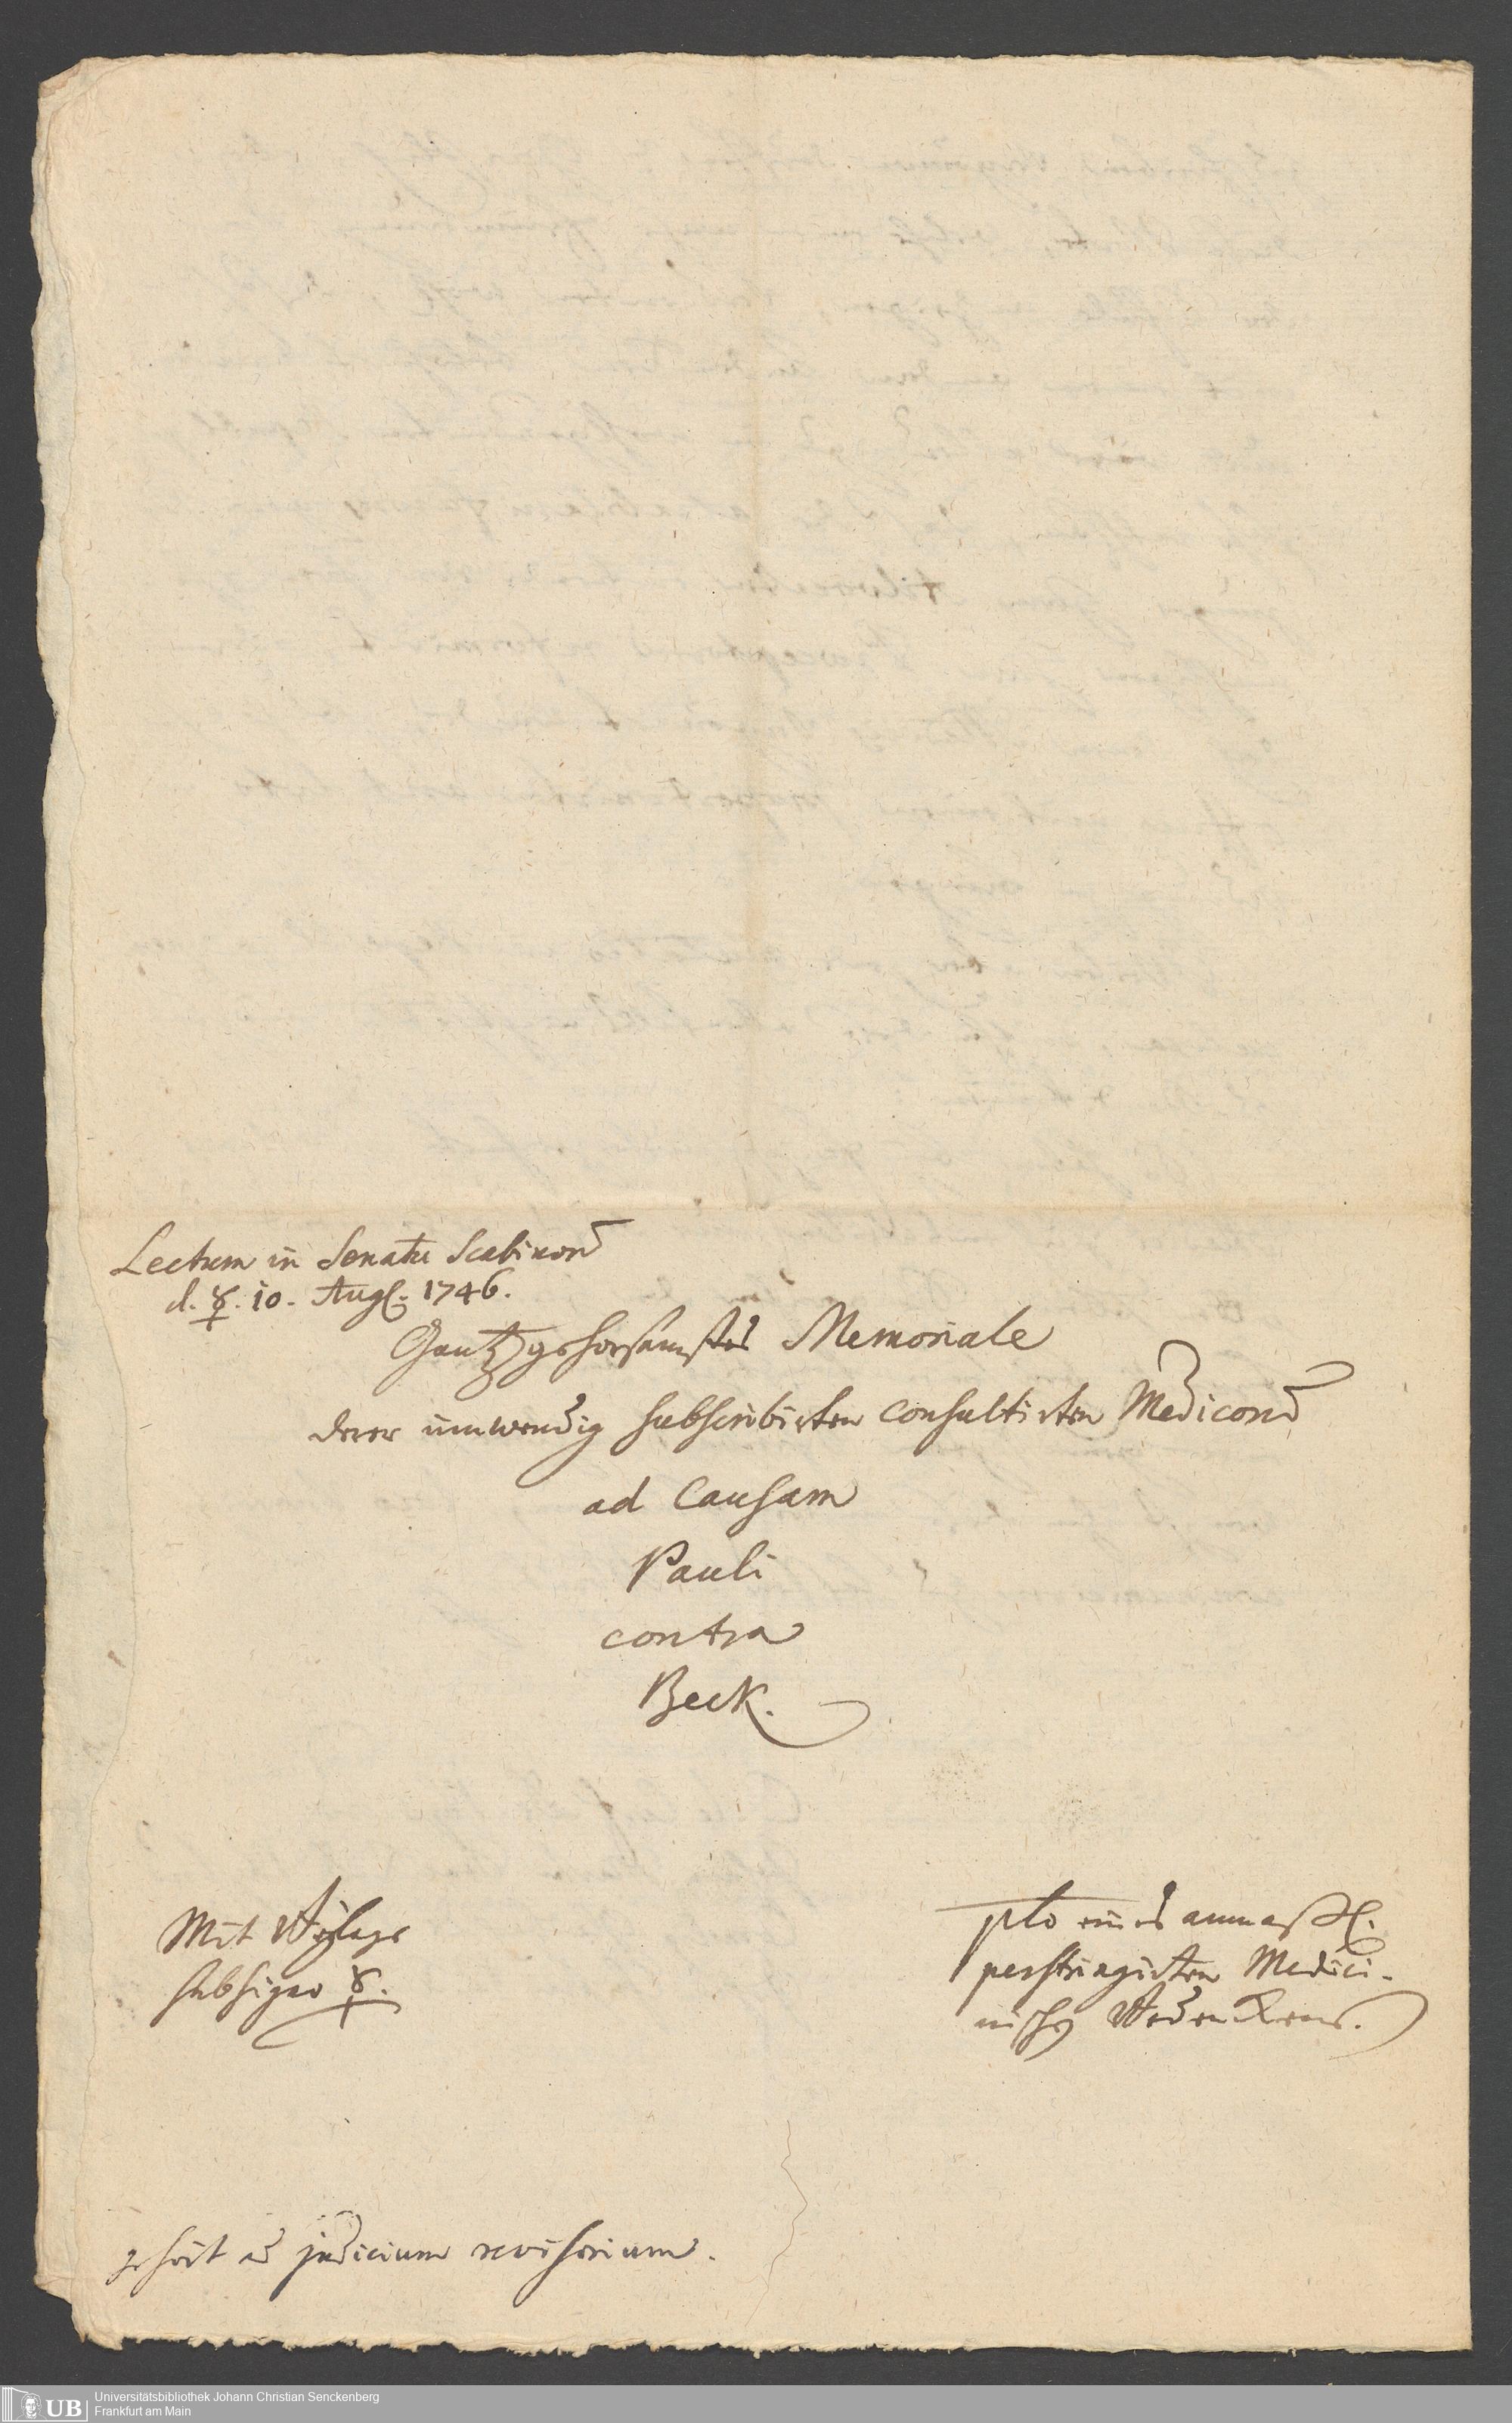 Lectum in Senatu Scabinor̄
d. ☿. 10. Aug. 1746.
Gantz gehorsamstes Memoriale
derer inwendig subscribirten consultirten Medicor̄
ad Causam
Pauli
contra
Beck.
Mit Beylage
subsigno ☿.
pto eines anmaßl.
perstringirten Medici-
nischen Bedenckens.
gehört ad judicium revisorium.
UB
Universitätsbibliothek Johann Christian Senckenberg
Frankfurt am Main